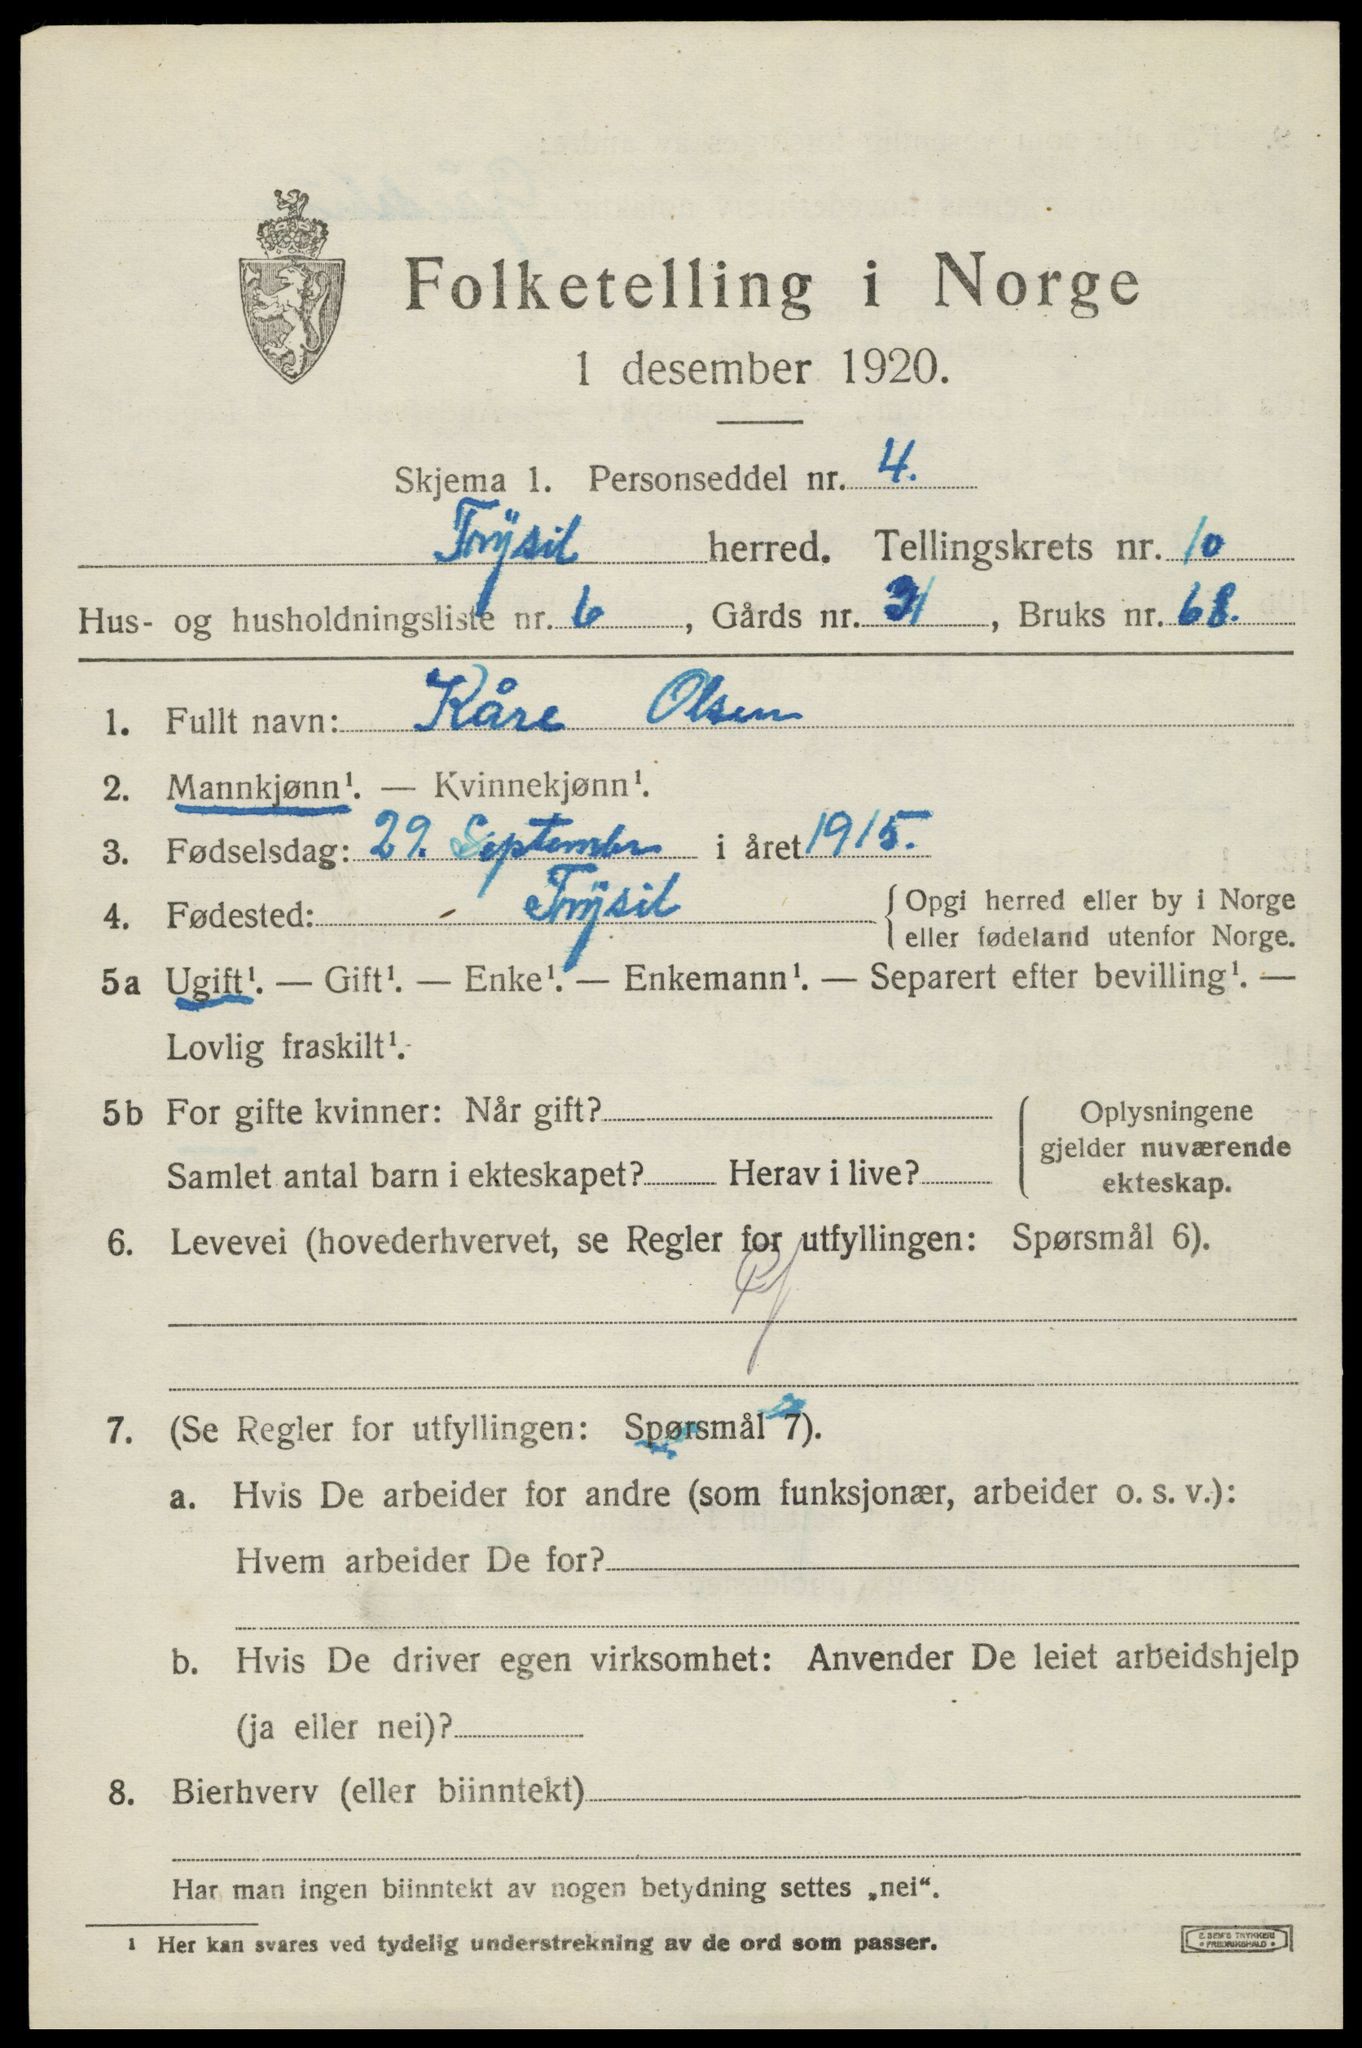 Folketelling i Norge
1 desember 1920.
Skjema 1. Personseddel nr. 4.
Trysil herred. Tellingskrets nr. 10
Hus- og husholdningsliste nr. 6, Gårds nr. 31, Bruks nr. 68.
1. Fullt navn: Kåre Olsen
2. Mannkjønn¹. — Kvinnekjønn¹.
3. Fødselsdag: 29. September i året 1915.
4. Fødested: Trysil { Opgi herred eller by i Norge
eller fødeland utenfor Norge.
5a Ugift¹. — Gift¹. — Enke¹. — Enkemann¹. — Separert efter bevilling¹. —
Lovlig fraskilt¹.
5b For gifte kvinner: Når gift? { Oplysningene
gjelder nuværende
Samlet antal barn i ekteskapet? Herav i live? ekteskap.
6. Levevei (hovederhvervet, se Regler for utfyllingen: Spørsmål 6).
7. (Se Regler for utfyllingen: Spørsmål 7).
a. Hvis De arbeider for andre (som funksjonær, arbeider o. s. v.):
Hvem arbeider De for?
b. Hvis De driver egen virksomhet: Anvender De leiet arbeidshjelp
(ja eller nei)?
8. Bierhverv (eller biinntekt)
Har man ingen biinntekt av nogen betydning settes „nei“.
¹ Her kan svares ved tydelig understrekning av de ord som passer.
E. SEM'S TRYKKERI
• FREDRIKSHALD •